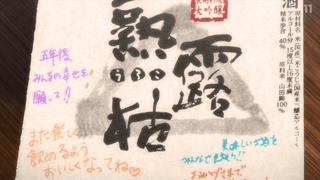 酒
原材料名 米(国産)米こうじ(国産米)醸造アルコール
アルコール分 15度以上16度未満
精米歩合 40%
原料米 山田錦100%
大吟醸
露
熟
うるこ
枯
五年後
みんなの幸せを
願って!!
また集い
飲めるよう
おいしくなってね♡
美味しいお酒を
みんなで
11